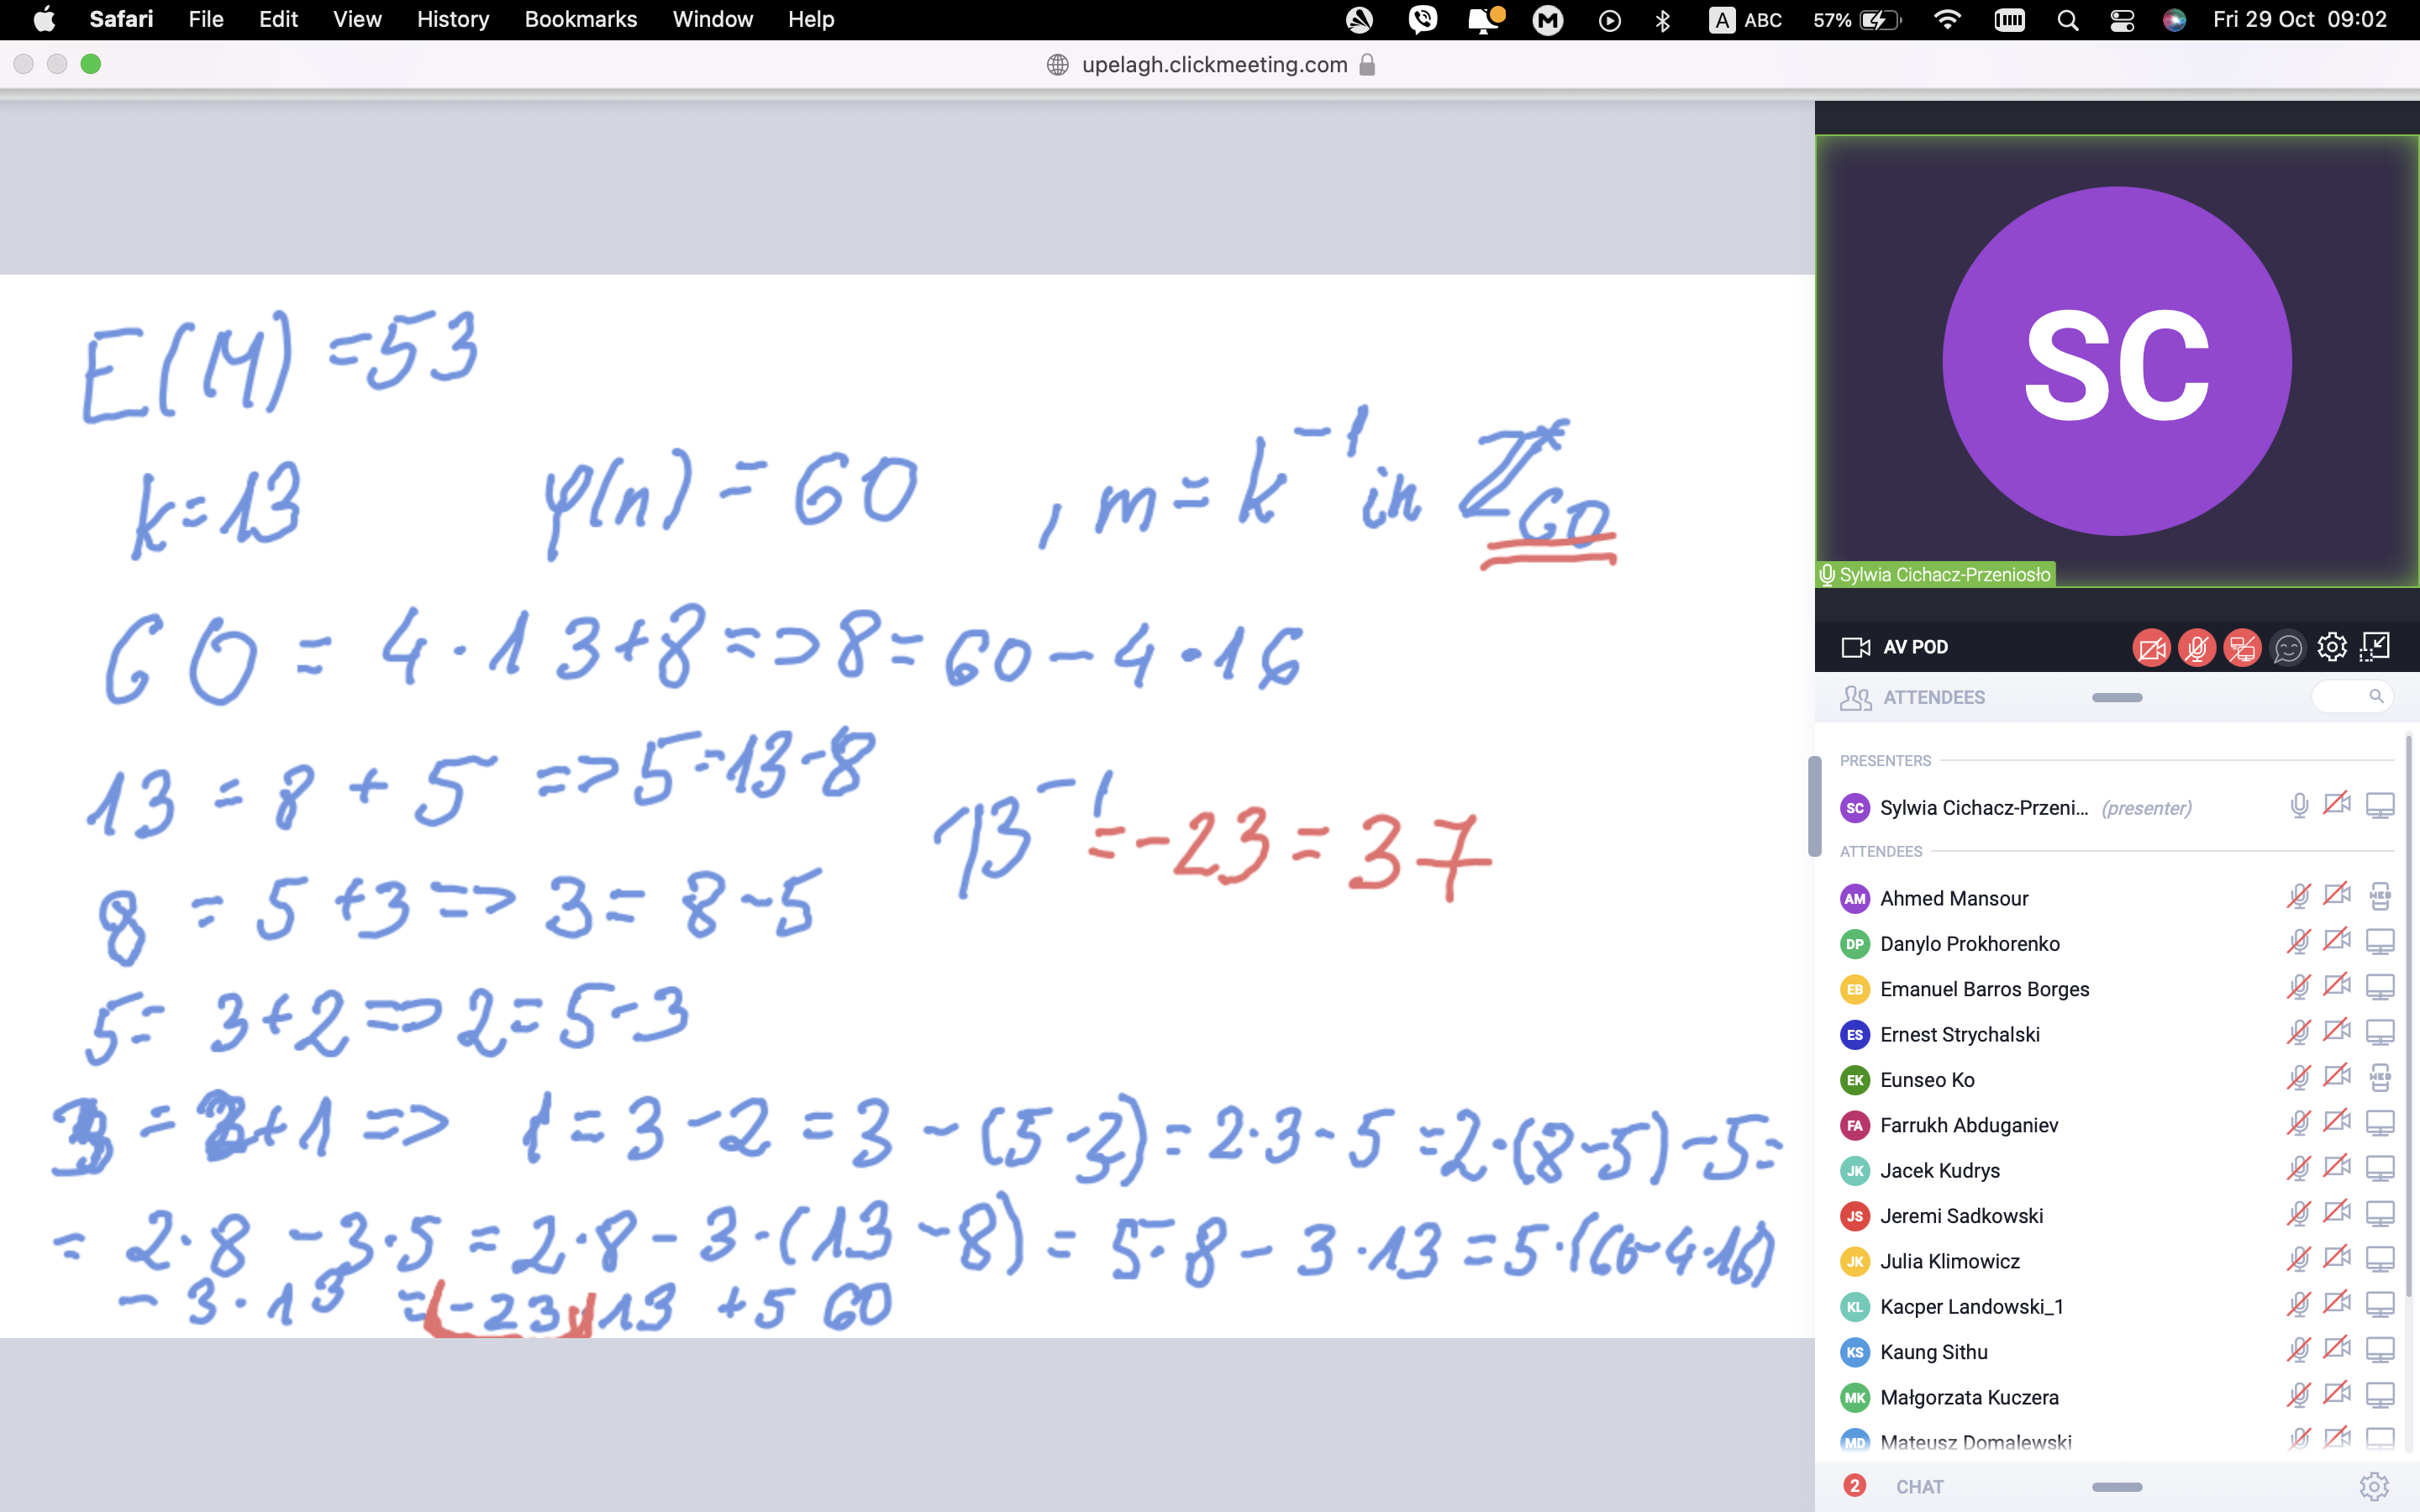 Safari File Edit View History Bookmarks Window Help A ABC 57% Fri 29 Oct 09:02
upelagh.clickmeeting.com
E(M) = 53
k=13 φ(n) = 60 , m = k⁻¹ in Z*₆₀
60 = 4·13+8 => 8 = 60 - 4·16
13 = 8 + 5 => 5=13-8
13⁻¹ = -23 = 37
8 = 5+3 => 3 = 8-5
5= 3+2 => 2=5-3
3 = 2+1 => 1 = 3-2 = 3 - (5-3) = 2·3-5 = 2·(8-5)-5=
= 2·8 -3·5 = 2·8 - 3·(13-8) = 5·8 - 3·13 = 5·(60-4·16)
- 3·13 = (-23)13 +5 60
SC
Sylwia Cichacz-Przeniosło
AV POD
ATTENDEES
PRESENTERS
SC Sylwia Cichacz-Przeni... (presenter)
ATTENDEES
AM Ahmed Mansour WEB
DP Danylo Prokhorenko
EB Emanuel Barros Borges
ES Ernest Strychalski
EK Eunseo Ko WEB
FA Farrukh Abduganiev
JK Jacek Kudrys
JS Jeremi Sadkowski
JK Julia Klimowicz
KL Kacper Landowski_1
KS Kaung Sithu
MK Małgorzata Kuczera
MD Mateusz Domalewski
2 CHAT